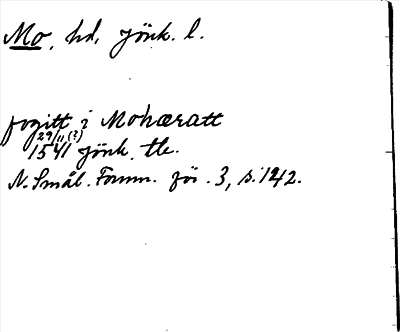 Mo, hd, Jönk. l.
fogitt i Mohæratt
29/11 (?)
1541 Jönk. tle.
N. Smål. Fornm.för. 3, s. 142.